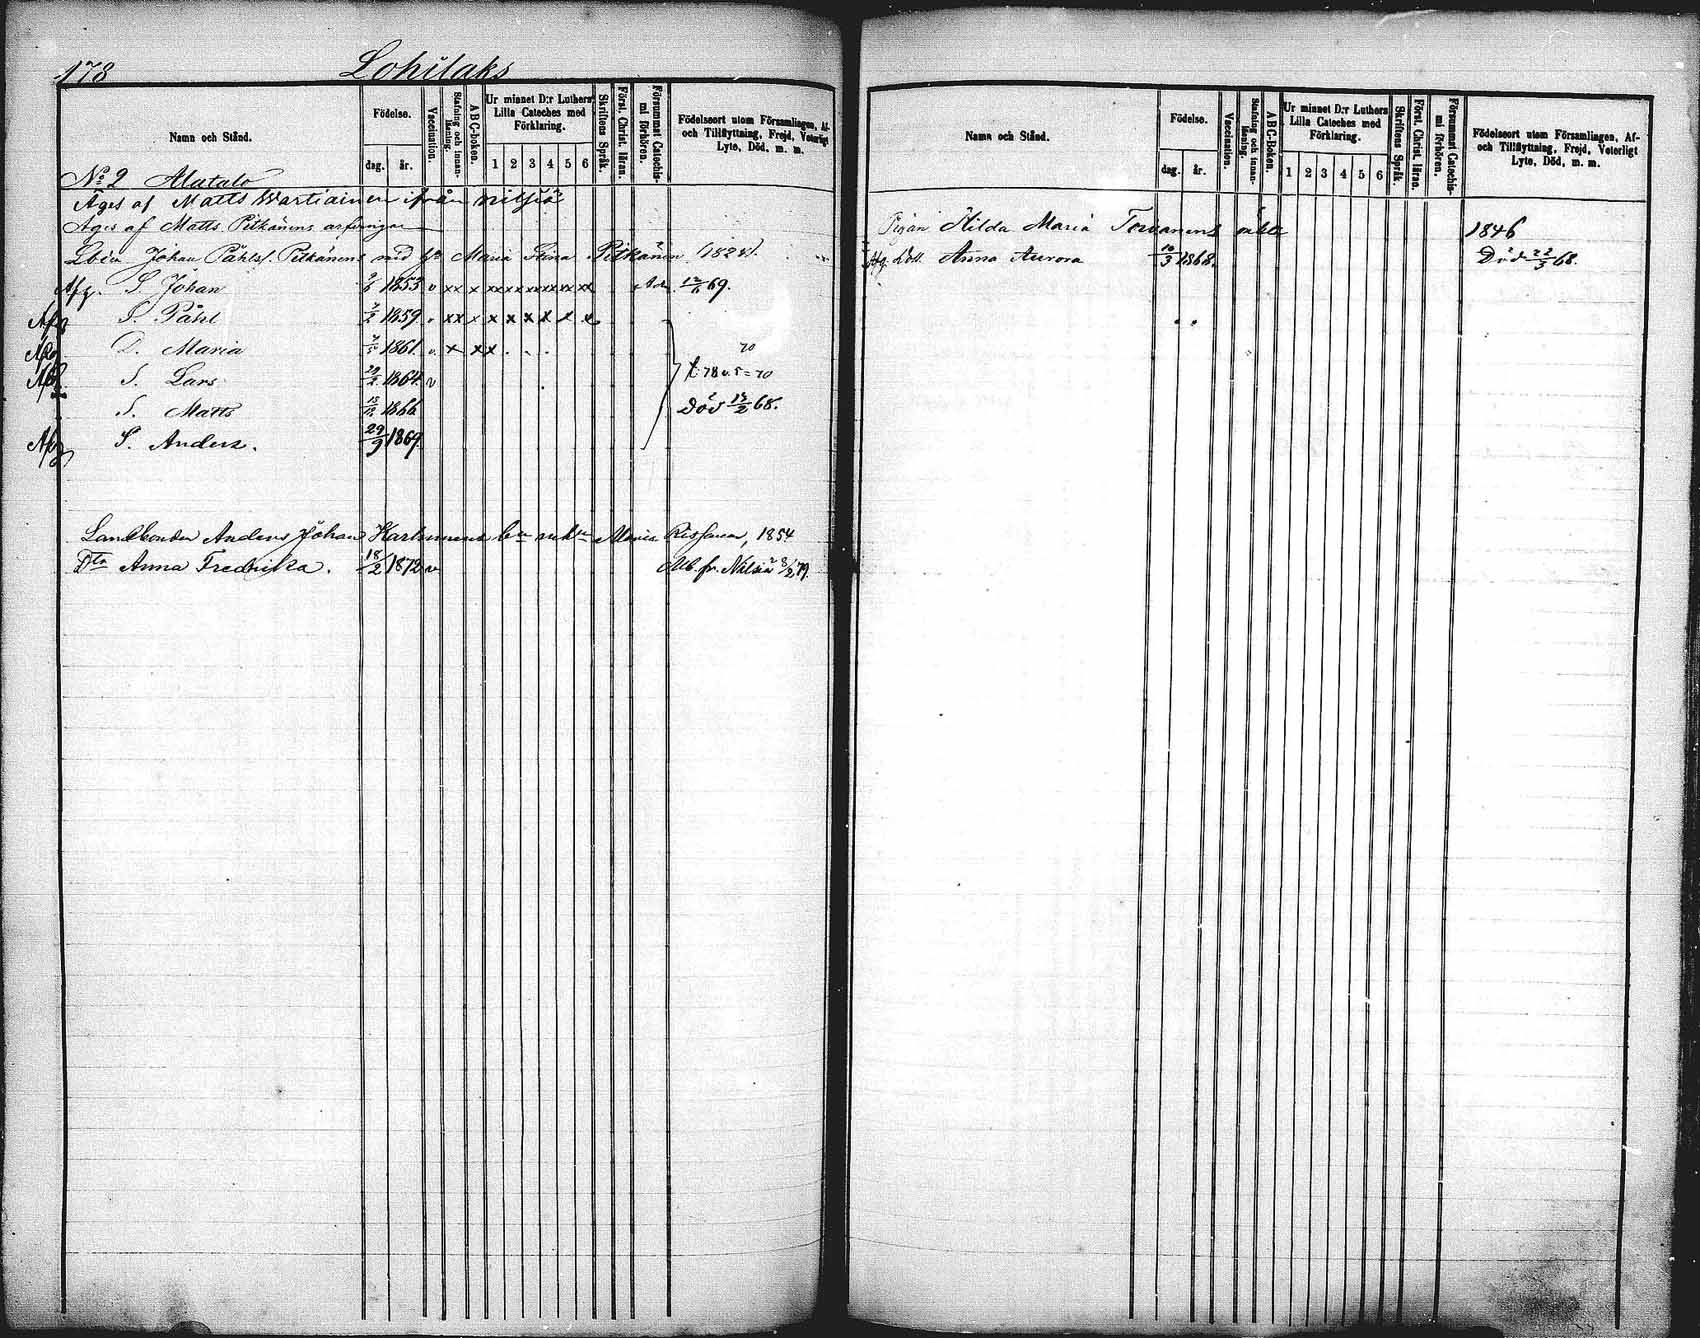 178 Lohilaks
Namn och Stånd.
Födelse.
dag. år.
Vaccination.
Stafning och innan-läsning.
ABC-boken.
Ur minnet D:r Luthers Lilla Cateches med Förklaring.
1 2 3 4 5 6
Skriftens Språk.
Först. Christ. läran.
Försummat Catechis-mi förhören.
Födelseort utom Församlingen, Af- och Tillflyttning, Frejd, Veterligt Lyte, Död, m. m.
No 2 Alatalo
Äges af Matts Wartiainen ifrån Nilsiä
Äges af Matts Pitkänens arfvingar
Johan Påhls. Pitkänens med Maria Stina Pitkänen (1828).
Afg. S. Johan 1853 v xx x xx xx xx xx xx xx 69.
Afg S. Påhl 1859 xx x x x x x x x
Afg D. Maria 1861 v. x xx x 70
Afg S. Lars 29/2 1864 v 78 v. 5 = 70
S. Matts 1866 Död 68.
Afg S. Anders. 29/9 1869
Landbonden Anders Johan Karhunens Maria Rissanen, 1854
Dtr Anna Fredrika. 18/2 1872 v fr. Nilsiä 79.
Namn och Stånd.
Födelse.
dag. år.
Vaccination.
Stafning och innan-läsning.
ABC-Boken.
Ur minnet D:r Luthers Lilla Cateches med Förklaring.
1 2 3 4 5 6
Skriftens Språk.
Först. Christ. läran.
Försummat Catechis-mi förhören.
Födelseort utom Församlingen, Af- och Tillflyttning, Frejd, Veterligt Lyte, Död, m. m.
Pigan Hilda Maria Toivanens oäkta 1846
Afg. Dott. Anna Aurora 10/3 1868. Död 22/5 68.